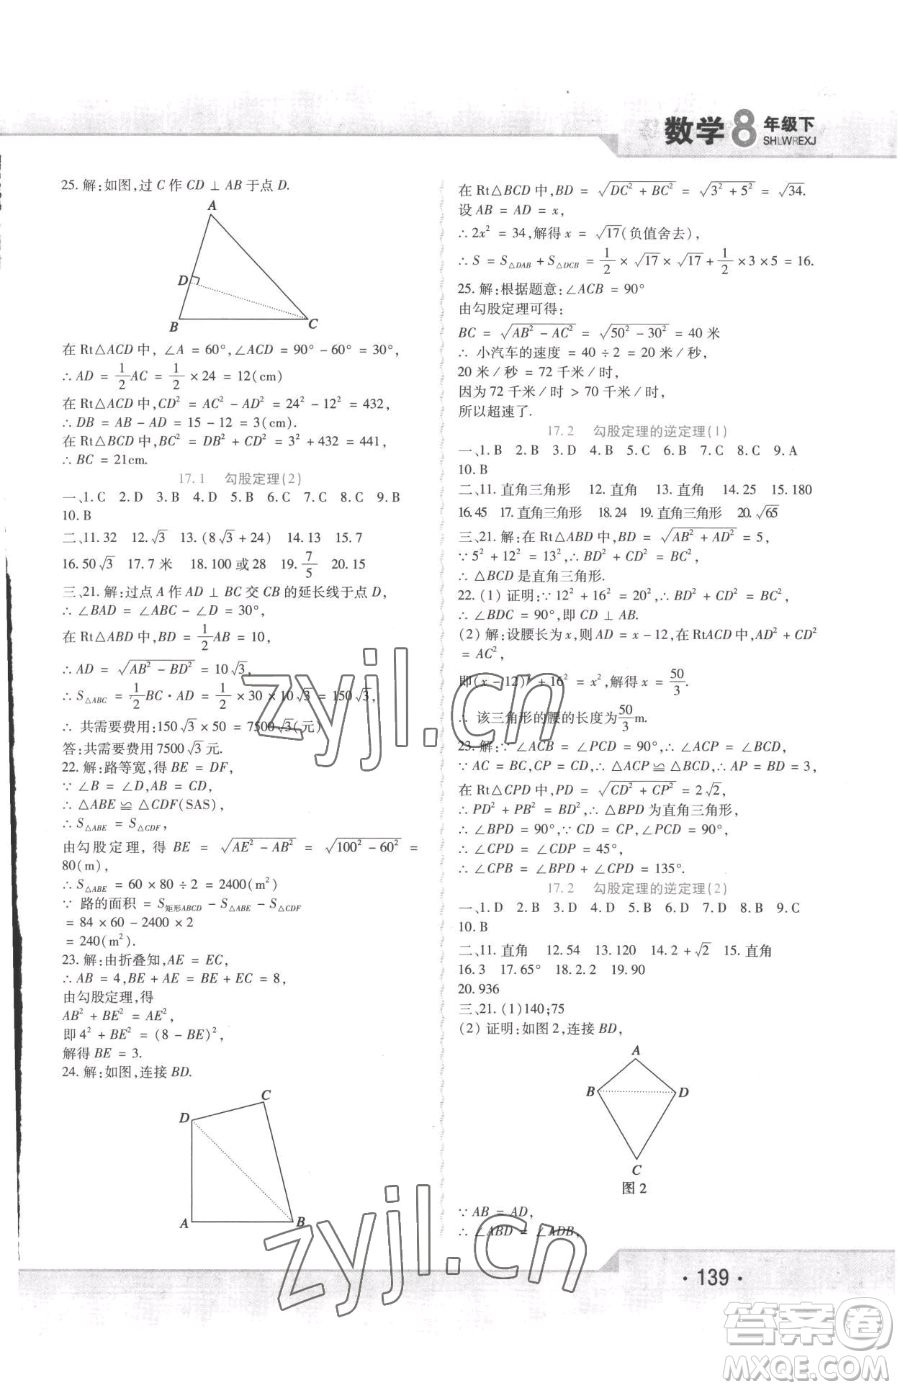 数学8年级下
SHLWREXJ
25. 解:如图,过 C 作 CD ⊥ AB 于点 D.
A
D
B
C
在 Rt△ACD 中, ∠A = 60°,∠ACD = 90° - 60° = 30°,
∴ AD = 1/2 AC = 1/2 × 24 = 12(cm)
在 Rt△ACD 中,CD² = AC² - AD² = 24² - 12² = 432,
∴ DB = AB - AD = 15 - 12 = 3(cm).
在 Rt△BCD 中,BC² = DB² + CD² = 3² + 432 = 441,
∴ BC = 21cm.
17.1 勾股定理(2)
一、1. C 2. D 3. B 4. D 5. B 6. C 7. C 8. C 9. B
10. B
二、11. 32 12. √3 13. (8√3 + 24) 14. 13 15. 7
16. 50√3 17. 7 米 18. 100 或 28 19. 7/5 20. 15
三、21. 解:过点 A 作 AD ⊥ BC 交 CB 的延长线于点 D,
∴ ∠BAD = ∠ABC - ∠D = 30°,
在 Rt△ABD 中,BD = 1/2 AB = 10,
∴ AD = √(AB² - BD²) = 10√3,
∴ S△ABC = 1/2 BC · AD = 1/2 × 30 × 10√3 = 150√3,
∴ 共需要费用:150√3 × 50 = 7500√3(元)
答:共需要费用 7500√3元.
22. 解:路等宽,得 BE = DF,
∵ ∠B = ∠D,AB = CD,
∴ △ABE ≌ △CDF(SAS),
∴ S△ABE = S△CDF,
由勾股定理, 得 BE = √(AE² - AB²) = √(100² - 60²) =
80(m),
∴ S△ABE = 60 × 80 ÷ 2 = 2400(m²)
∵ 路的面积 = S矩形ABCD - S△ABE - S△CDF
= 84 × 60 - 2400 × 2
= 240(m²).
23. 解:由折叠知,AE = EC,
∴ AB = 4,BE + AE = BE + EC = 8,
由勾股定理,得
AB² + BE² = AE²,
即 4² + BE² = (8 - BE)²,
解得 BE = 3.
24. 解:如图,连接 BD.
C
D
A
B
在 Rt△BCD 中,BD = √(DC² + BC²) = √(3² + 5²) = √34.
设 AB = AD = x,
∴ 2x² = 34,解得 x = √17(负值舍去),
∴ S = S△DAB + S△DCB = 1/2 × √17 × √17 + 1/2 × 3 × 5 = 16.
25. 解:根据题意:∠ACB = 90°
由勾股定理可得:
BC = √(AB² - AC²) = √(50² - 30²) = 40 米
∴ 小汽车的速度 = 40 ÷ 2 = 20 米/秒,
20 米/秒 = 72 千米/时,
因为 72 千米/时 > 70 千米/时,
所以超速了.
17.2 勾股定理的逆定理(1)
一、1. B 2. B 3. D 4. C 5. B 6. D 7. C 8. C 9. A
10. B
二、11. 直角三角形 12. 直角 13. 直角三角形 14. 25 15. 180
16. 45 17. 直角三角形 18. 24 19. 直角三角形 20. √65
三、21. 解:在 Rt△ABD 中,BD = √(AB² + AD²) = 5,
∵ 5² + 12² = 13²,∴ BD² + CD² = BC²,
∴ △BCD 是直角三角形.
22. (1) 证明:∵ 12² + 16² = 20²,∴ BD² + CD² = BC²,
∴ ∠BDC = 90°,即 CD ⊥ AB.
(2) 解:设腰长为 x,则 AD = x - 12,在 RtACD 中,AD² + CD²
= AC²,
即(x - 12)² + 16² = x²,解得 x = 50/3.
∴ 该三角形的腰的长度为 50/3 m.
23. 解:∵ ∠ACB = ∠PCD = 90°,∴ ∠ACP = ∠BCD,
∵ AC = BC,CP = CD,∴ △ACP ≌ △BCD,∴ AP = BD = 3,
在 Rt△CPD 中,PD = √(CD² + CP²) = 2√2,
∴ PD² + PB² = BD²,∴ △BPD 为直角三角形,
∴ ∠BPD = 90°,∵ CD = CP,∠PCD = 90°,
∴ ∠CPD = ∠CDP = 45°,
∴ ∠CPB = ∠BPD + ∠CPD = 135°.
17.2 勾股定理的逆定理(2)
一、1. D 2. B 3. C 4. D 5. D 6. A 7. D 8. B 9. C
10. B
二、11. 直角 12. 54 13. 120 14. 2 + √2 15. 直角
16. 3 17. 65° 18. 2. 2 19. 90
20. 936
三、21. (1)140;75
(2) 证明:如图 2,连接 BD,
A
B
D
C
图 2
∵ AB = AD,
∴ ∠ABD = ∠ADB,
zyjl.cn
zyjl.cn
· 139 ·
答案圈
MXQE.COM